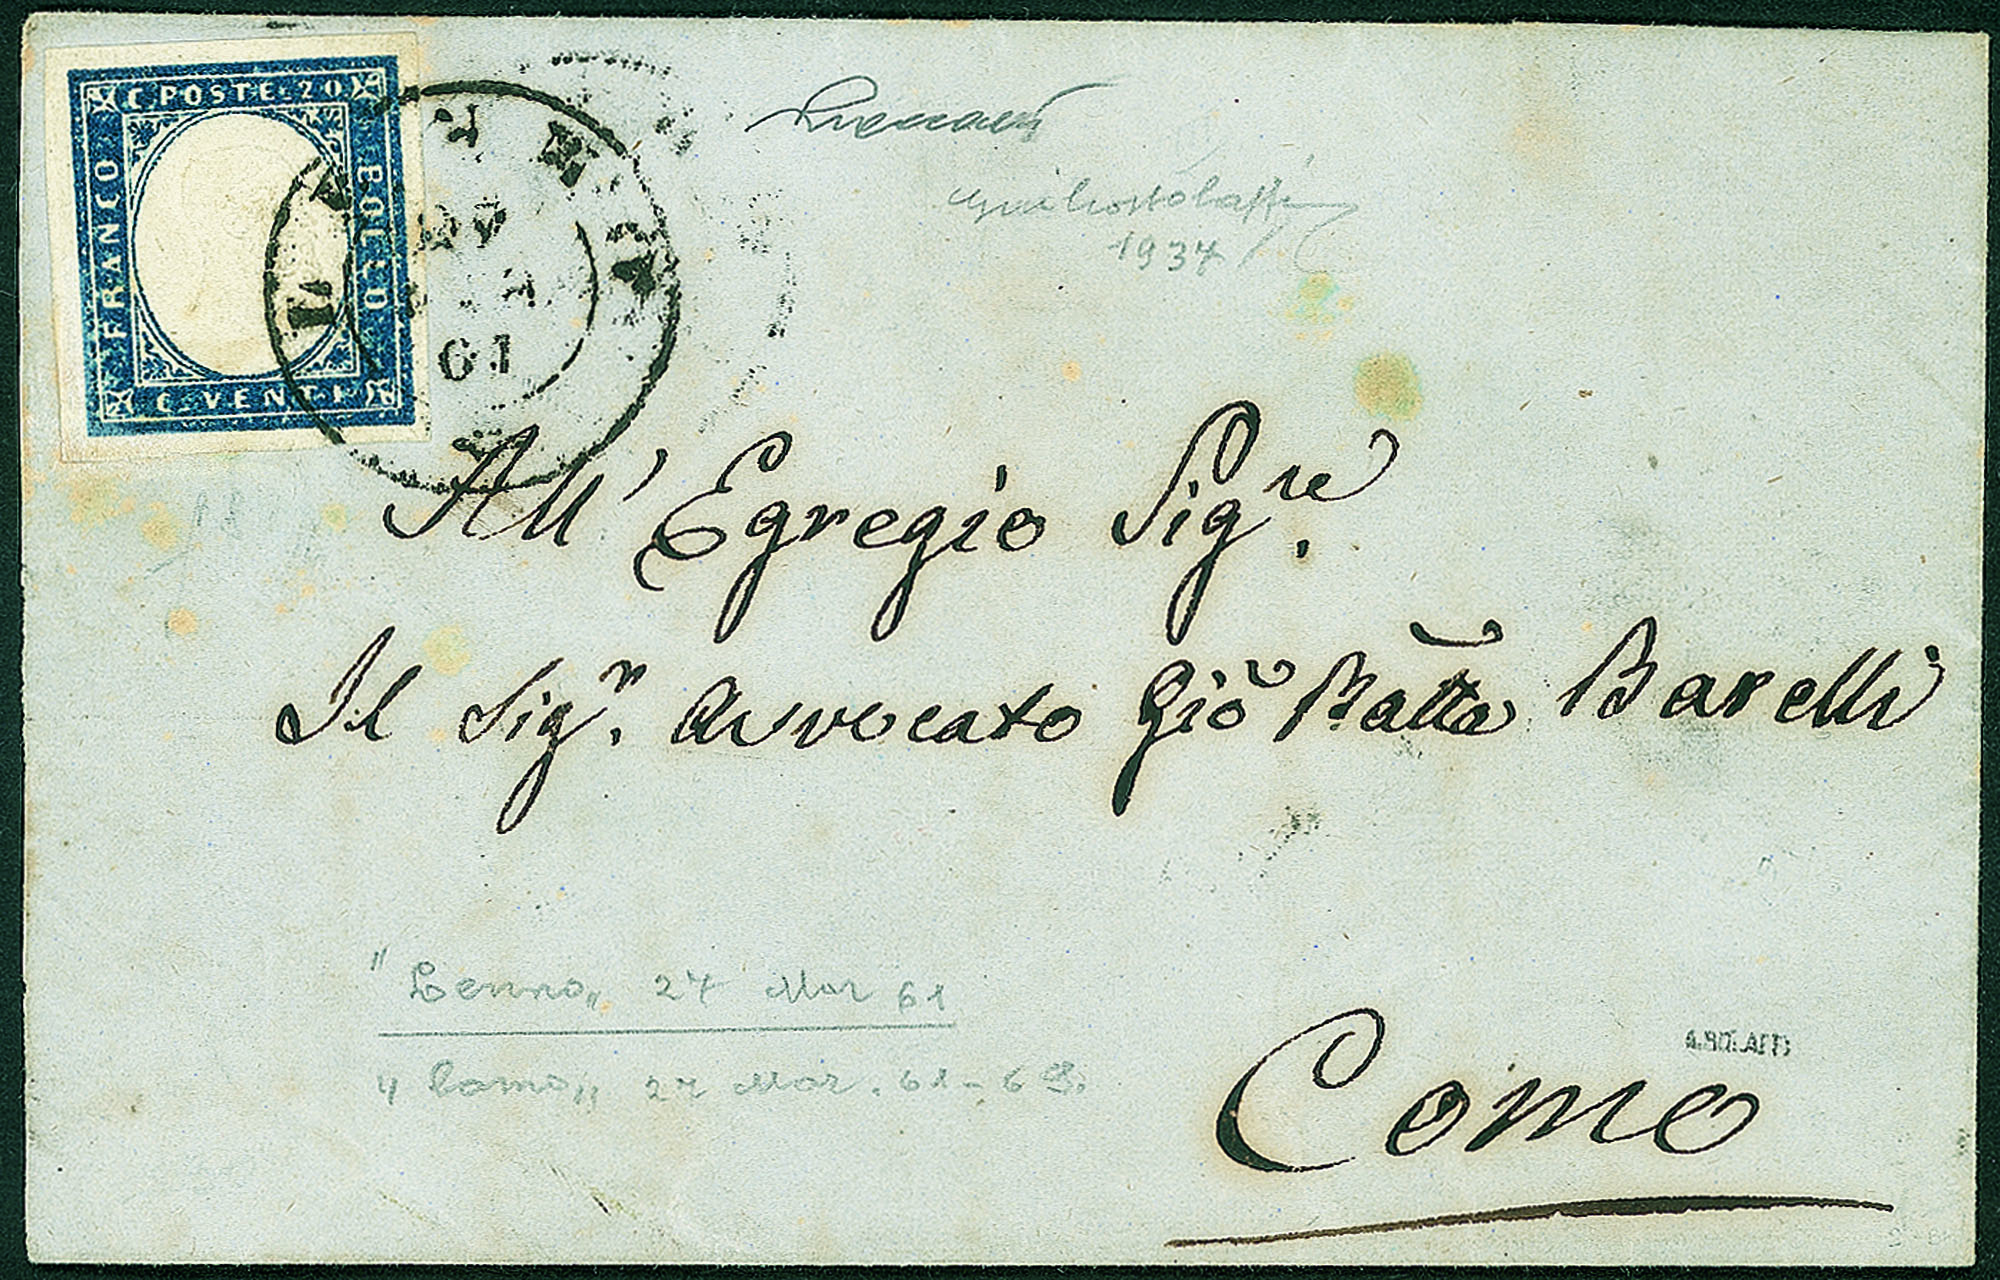 C. POSTE. 20
FRANCO
BOLLO
C. VENTI
61
1937
All' Egregio Sig.re
Il Sig.r Avvocato Giō Batta Barelli
"Lenno„ 27 Mar 61
„Como„ 27 Mar. 61 - 6 S.
A. BOLAFFI
Como